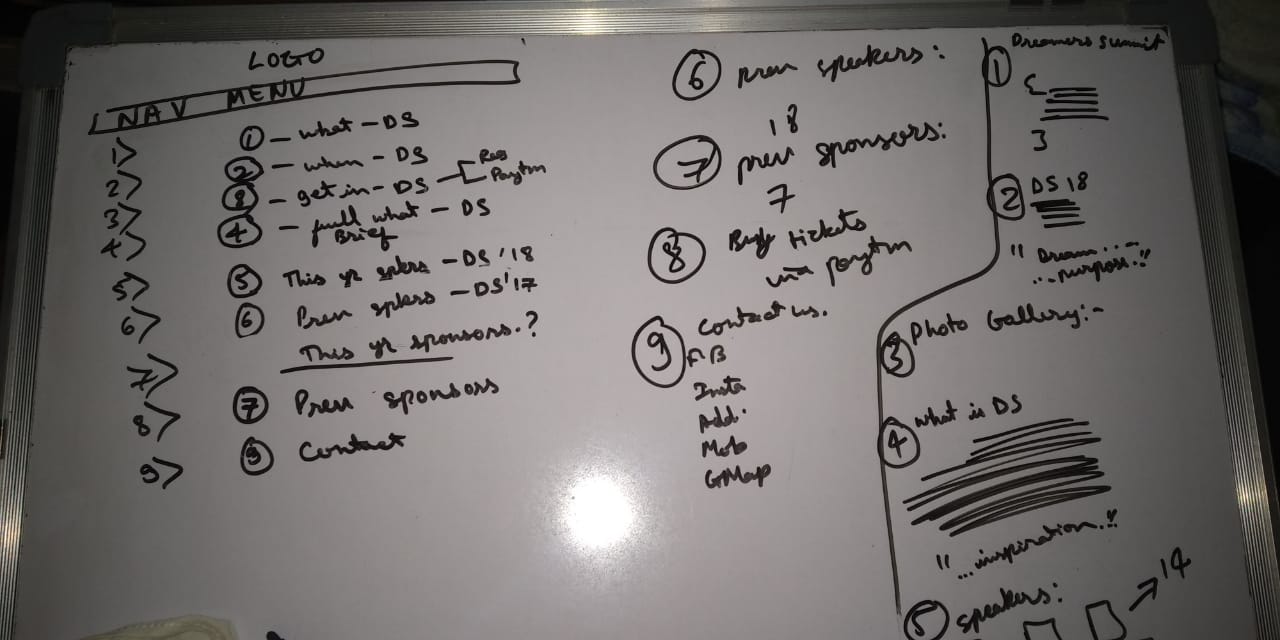 LOGO
NAV MENU
1>
2>
3>
4>
5>
6>
7>
8>
9>
① - what - DS
② - when - DS
③ - get in - DS
Reg
Paytm
④ - full what - DS
Brief
⑤ This yr spkrs - DS '18
⑥ Prev spkrs - DS '17
This yr sponsors.?
⑦ Prev sponsors
⑨ Contact
⑥ prev speakers:
18
⑦ prev sponsors:
7
⑧ Buy tickets
via paytm
⑨ Contact us.
FB
Insta
Add.
Mob
GMap
① Dreamers summit
3
② DS 18
" Dream ...
... purpose."
③ Photo Gallery:-
④ what is DS
"...inspiration."
⑤ speakers:
14